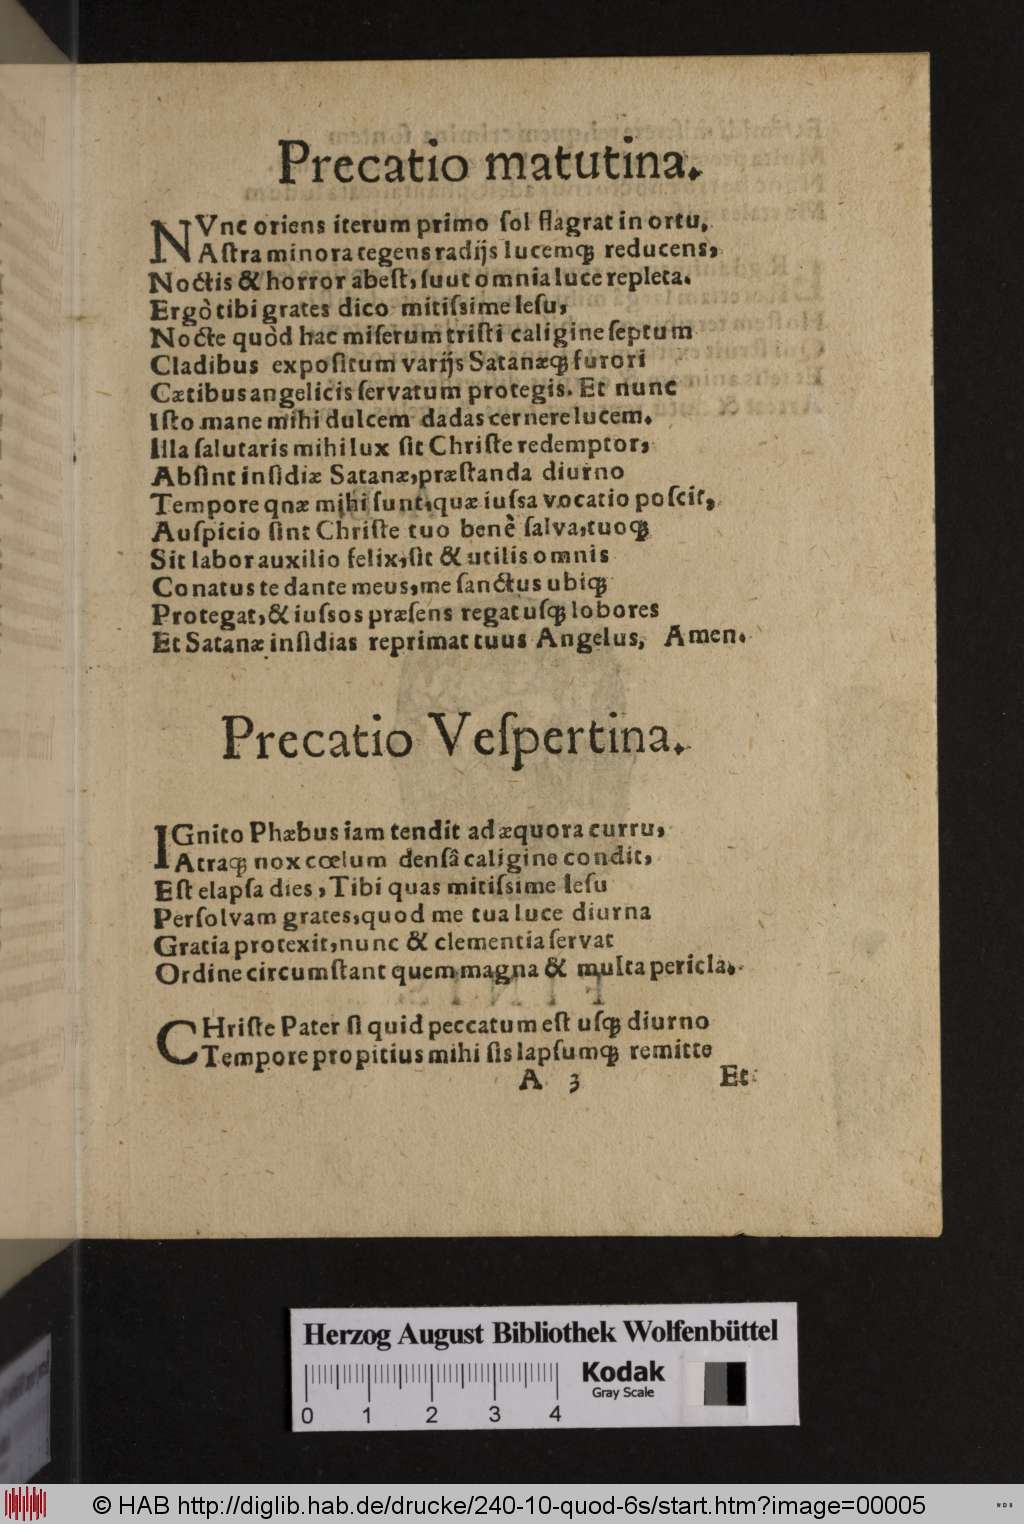 Precatio matutina.
NVnc oriens iterum primo ſol flagrat in ortu,
Aſtra minora tegens radijs lucemq́; reducens,
Noctis & horror abeſt, ſuut omnia luce repleta.
Ergò tibi grates dico mitiſsime Ieſu,
Nocte quòd hac miſerum triſti caligine ſeptum
Cladibus expoſitum varijs Satanæq́; furori
Cætibus angelicis ſervatum protegis. Et nunc
Iſto mane mihi dulcem dadas cernere lucem.
Illa ſalutaris mihi lux ſit Chriſte redemptor,
Abſint inſidiæ Satanæ, præſtanda diurno
Tempore qnæ mihi ſunt, quæ iuſsa vocatio poſcit,
Auſpicio ſint Chriſte tuo benè ſalva, tuoq́;
Sit labor auxilio felix, ſit & utilis omnis
Conatus te dante meus, me ſanctus ubiq́;
Protegat, & iuſsos præſens regat uſq́; lobores
Et Satanæ inſidias reprimat tuus Angelus, Amen.
Precatio Veſpertina.
IGnito Phæbus iam tendit ad æquora curru,
Atraq́; nox cœlum denſâ caligine condit,
Eſt elapſa dies, Tibi quas mitiſsime Ieſu
Perſolvam grates, quod me tua luce diurna
Gratia protexit, nunc & clementia ſervat
Ordine circumſtant quem magna & multa pericla.
CHriſte Pater ſi quid peccatum eſt uſq́; diurno
Tempore propitius mihi ſis lapſumq́; remitte
A 3 Et
Herzog August Bibliothek Wolfenbüttel
Kodak
Gray Scale
0 1 2 3 4
© HAB http://diglib.hab.de/drucke/240-10-quod-6s/start.htm?image=00005